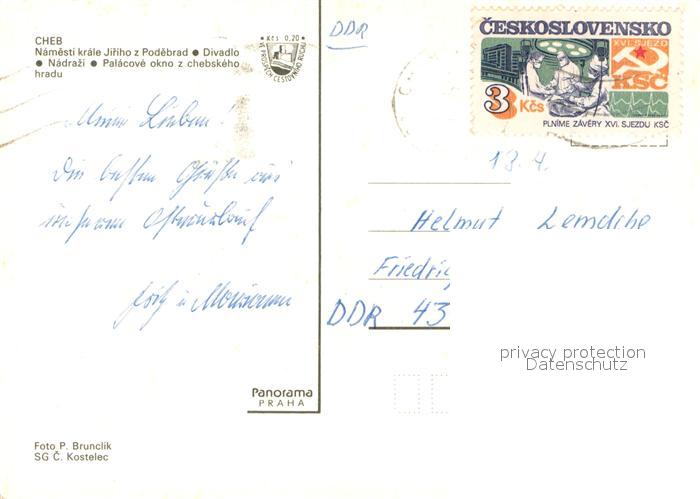 CHEB
Náměstí krále Jiřího z Poděbrad ● Divadlo
● Nádraží ● Palácové okno z chebského
hradu
Kčs 0,20
VE PROSPĚCH CESTOVNÍHO RUCHU
DDR
ČESKOSLOVENSKO
XVI. SJEZD
KSČ
3 Kčs
PLNÍME ZÁVĚRY XVI. SJEZDU KSČ
Meine Lieben!
Die besten Grüße aus
unserem Osterurlaub
Marianne
13. 4.
Helmut Lemdche
Friedrig
DDR 43
privacy protection
Datenschutz
Panorama
PRAHA
Foto P. Brunclík
SG Č. Kostelec